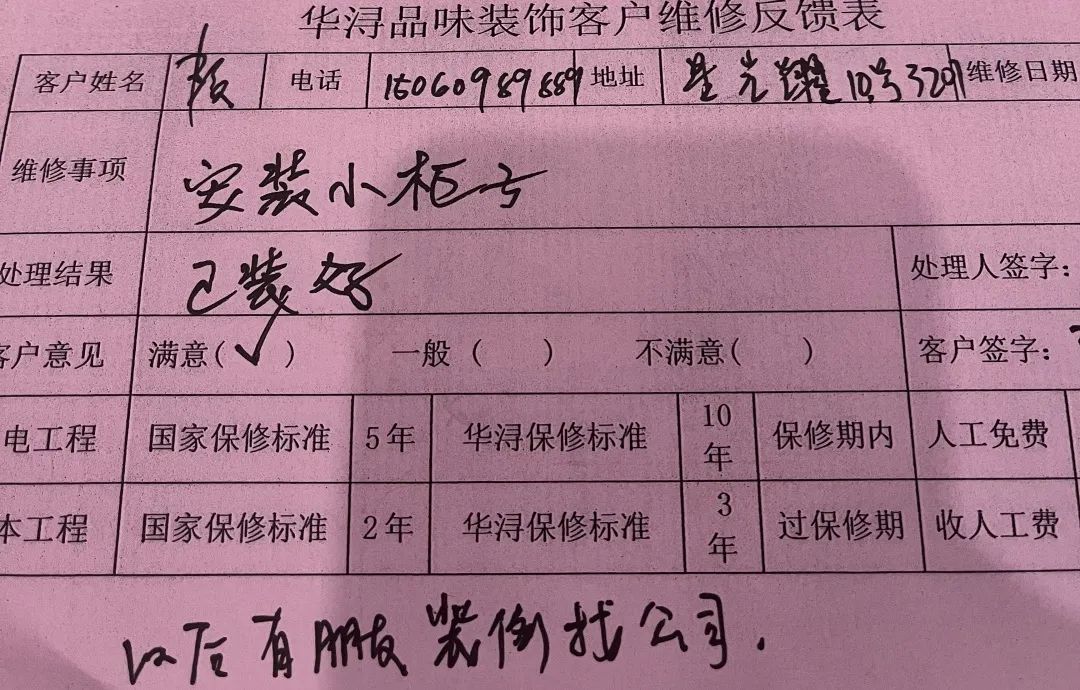 华浔品味装饰客户维修反馈表
客户姓名 电话 15060989889 地址 星光耀10号3291 维修日期
维修事项 安装小柜子
处理结果 已装好 处理人签字：
客户意见 满意(✓) 一般( ) 不满意( ) 客户签字：
电工程 国家保修标准 5年 华浔保修标准 10年 保修期内 人工免费
本工程 国家保修标准 2年 华浔保修标准 3年 过保修期 收人工费
以后有朋友装修找公司.